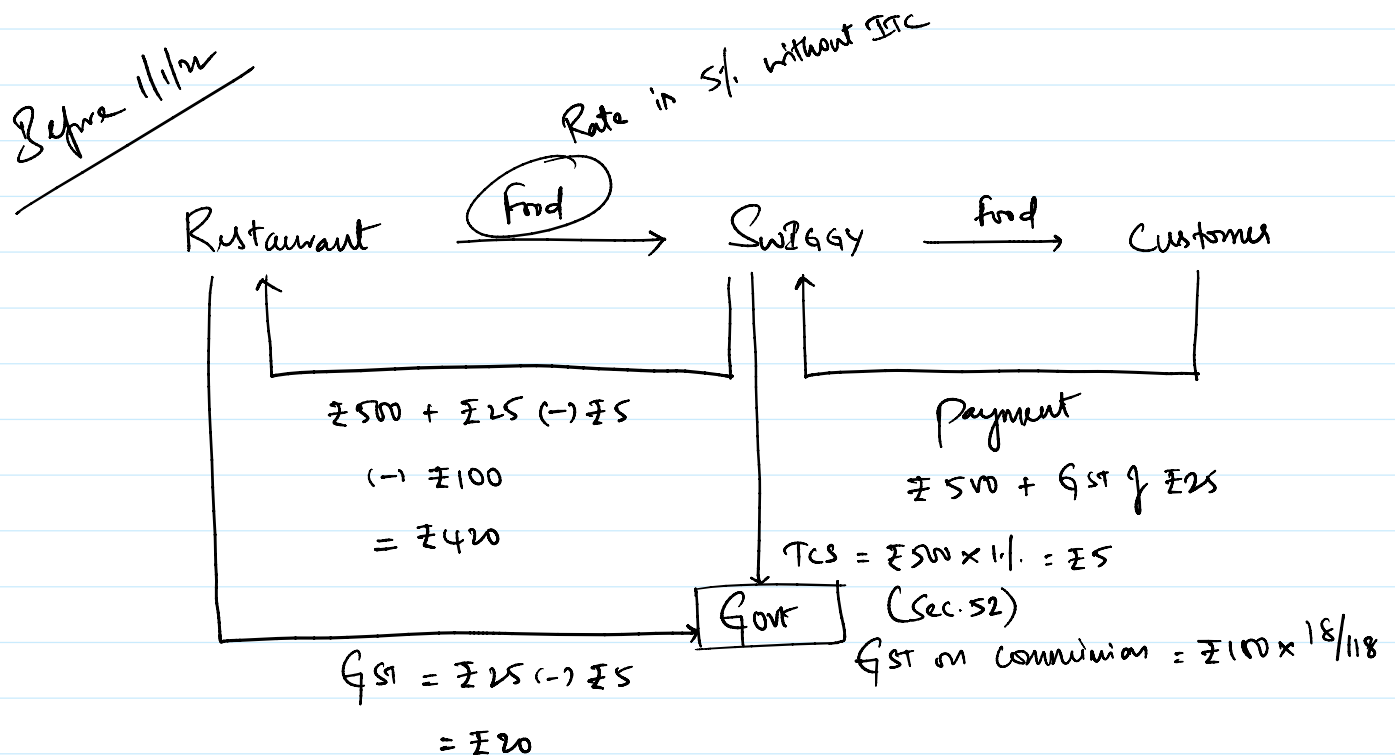 Before 1/1/22
Rate is 5% without ITC
Food
Restaurant
SWIGGY
food
Customer
₹500 + ₹25 (-) ₹5
(-) ₹100
= ₹420
Payment
₹500 + GST of ₹25
TCS = ₹500 x 1% = ₹5
(Sec. 52)
Govt
GST on commission = ₹100 x 18/118
GST = ₹25 (-) ₹5
= ₹20